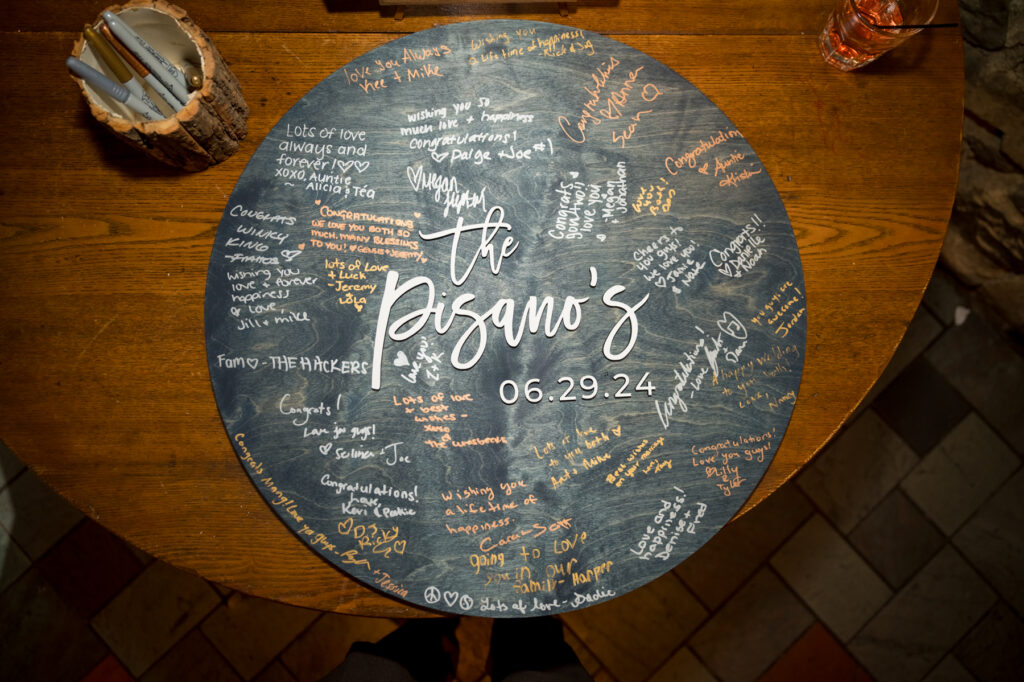 love You Always
Kree + Mike
Wishing you
a life time of happiness!
- Rick & Sg
Congratulations
Sean
Lots of love
always and
forever! ♡♡
XOXO, Auntie
~ Alicia & Téa
wishing you so
much love + happiness
congratulations!
♡ Paige + Joe #1
♡ Megan
Congrats
you two!!
love you
- Megan
Jonathan
love
you
Both!
Congratulations
♡ Auntie
Kristin
CONGRATS
WINKY
KING
CONGRATULATIONS
WE LOVE YOU BOTH SO
MUCH. MANY BLESSINGS
TO YOU! ♡ GENNIE + JEREMY
lots of Love
+ Luck
- Jeremy
Lola
Wishing you
love & forever
happiness
♡ Love,
Jill + mike
Cheers to
you guys!
we love you!
♡ Jamie
Congrats!!
♡ Danielle
you guys are
awesome!
Jordan
the
Pisano's
06.29.24
Fam ♡ - THE HACKERS
love you
Congratulations!
- Love
Happy Wedding
to you
Love, Nancy
Congrats!
Love you guys!
♡ Selina - Joe
Lots of love
+ best
wishes -
xoxo
the
Lots of love
to you both ♡
Best wishes
on your marriage
Congratulations!
Love you guys!
♡ Lilly
Congrats Mang! love you guys -
+ Jessica
Congratulations!
Love,
Kevi & Pookie
♡ DJ &
Ricky
Wishing you
a lifetime of
happiness.
Cara + Scott
going to Love
you in our
family - Harper
Love and
happiness!
Denise +
Fred
☮♡☮ Lots of love - Dadie